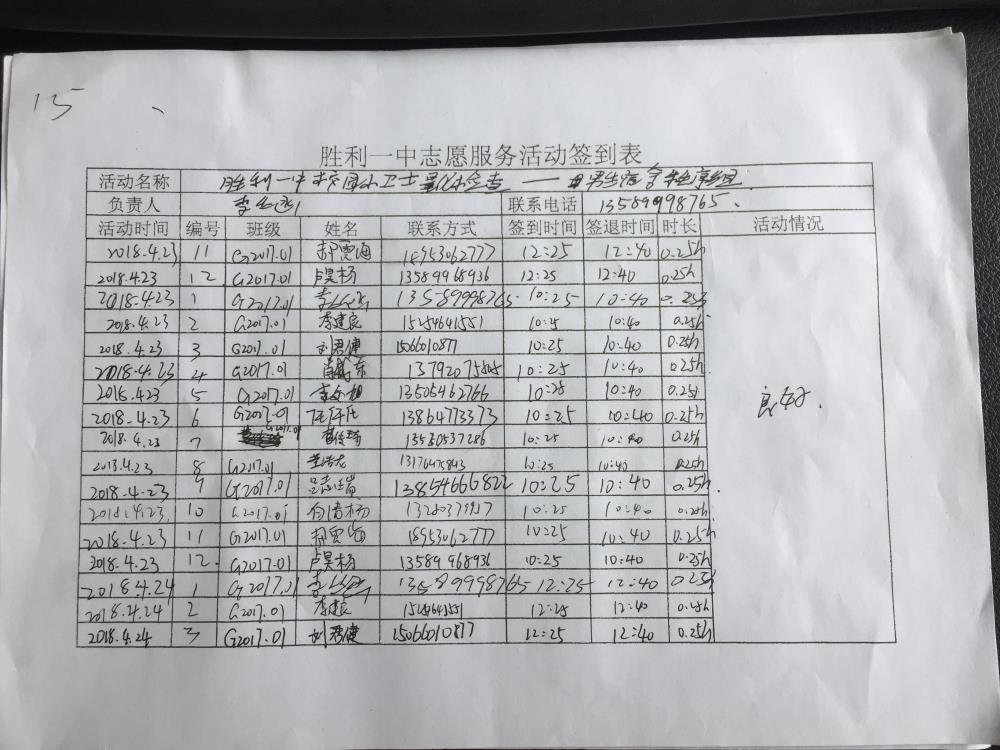 15
胜利一中志愿服务活动签到表
活动名称 胜利一中校园小卫士量化检查——男生宿舍
负责人 李 联系电话 13589998765.
活动时间 编号 班级 姓名 联系方式 签到时间 签退时间 时长 活动情况
2018.4.23 11 G2017.01 郝 18953062777 12:25 12:40 0.25h
2018.4.23 12 G2017.01 卢昊杨 13589968936 12:25 12:40 0.25h
2018.4.23 1 G2017.01 李 13589998765 10:25 10:40 0.25h
2018.4.23 2 G2017.01 李建良 15254641551 10:25 10:40 0.25h
2018.4.23 3 G2017.01 刘君健 15066010877 10:25 10:40 0.25h
2018.4.23 4 G2017.01 10:25 10:40 0.25h
2015.4.23 5 G2017.01 李 13505462766 10:25 10:40 0.25h
2018.4.23 6 G2017.01 13864773373 10:25 10:40 0.25h
2018.4.23 7 G2017.01 13530537286 10:25 10:40 0.25h
2018.4.23 8 G2017.01 13176475843 10:25 10:40 0.25h
2018.4.23 9 G2017.01 13854666822 10:25 10:40 0.25h
2018.4.23. 10 G2017.01 10:25 10:40 0.25h
2018.4.23 11 G2017.01 郝 18953062777 10:25 10:40 0.25h
2018.4.23 12. G2017.01 卢昊杨 13589968936 10:25 10:40 0.25h
2018.4.24 1 G2017.01 李 13589998765 12:25 12:40 0.25h
2018.4.24 2 G2017.01 李建良 12:25 12:40 0.25h
2018.4.24 3 G2017.01 刘君健 15066010877 12:25 12:40 0.25h
良好.